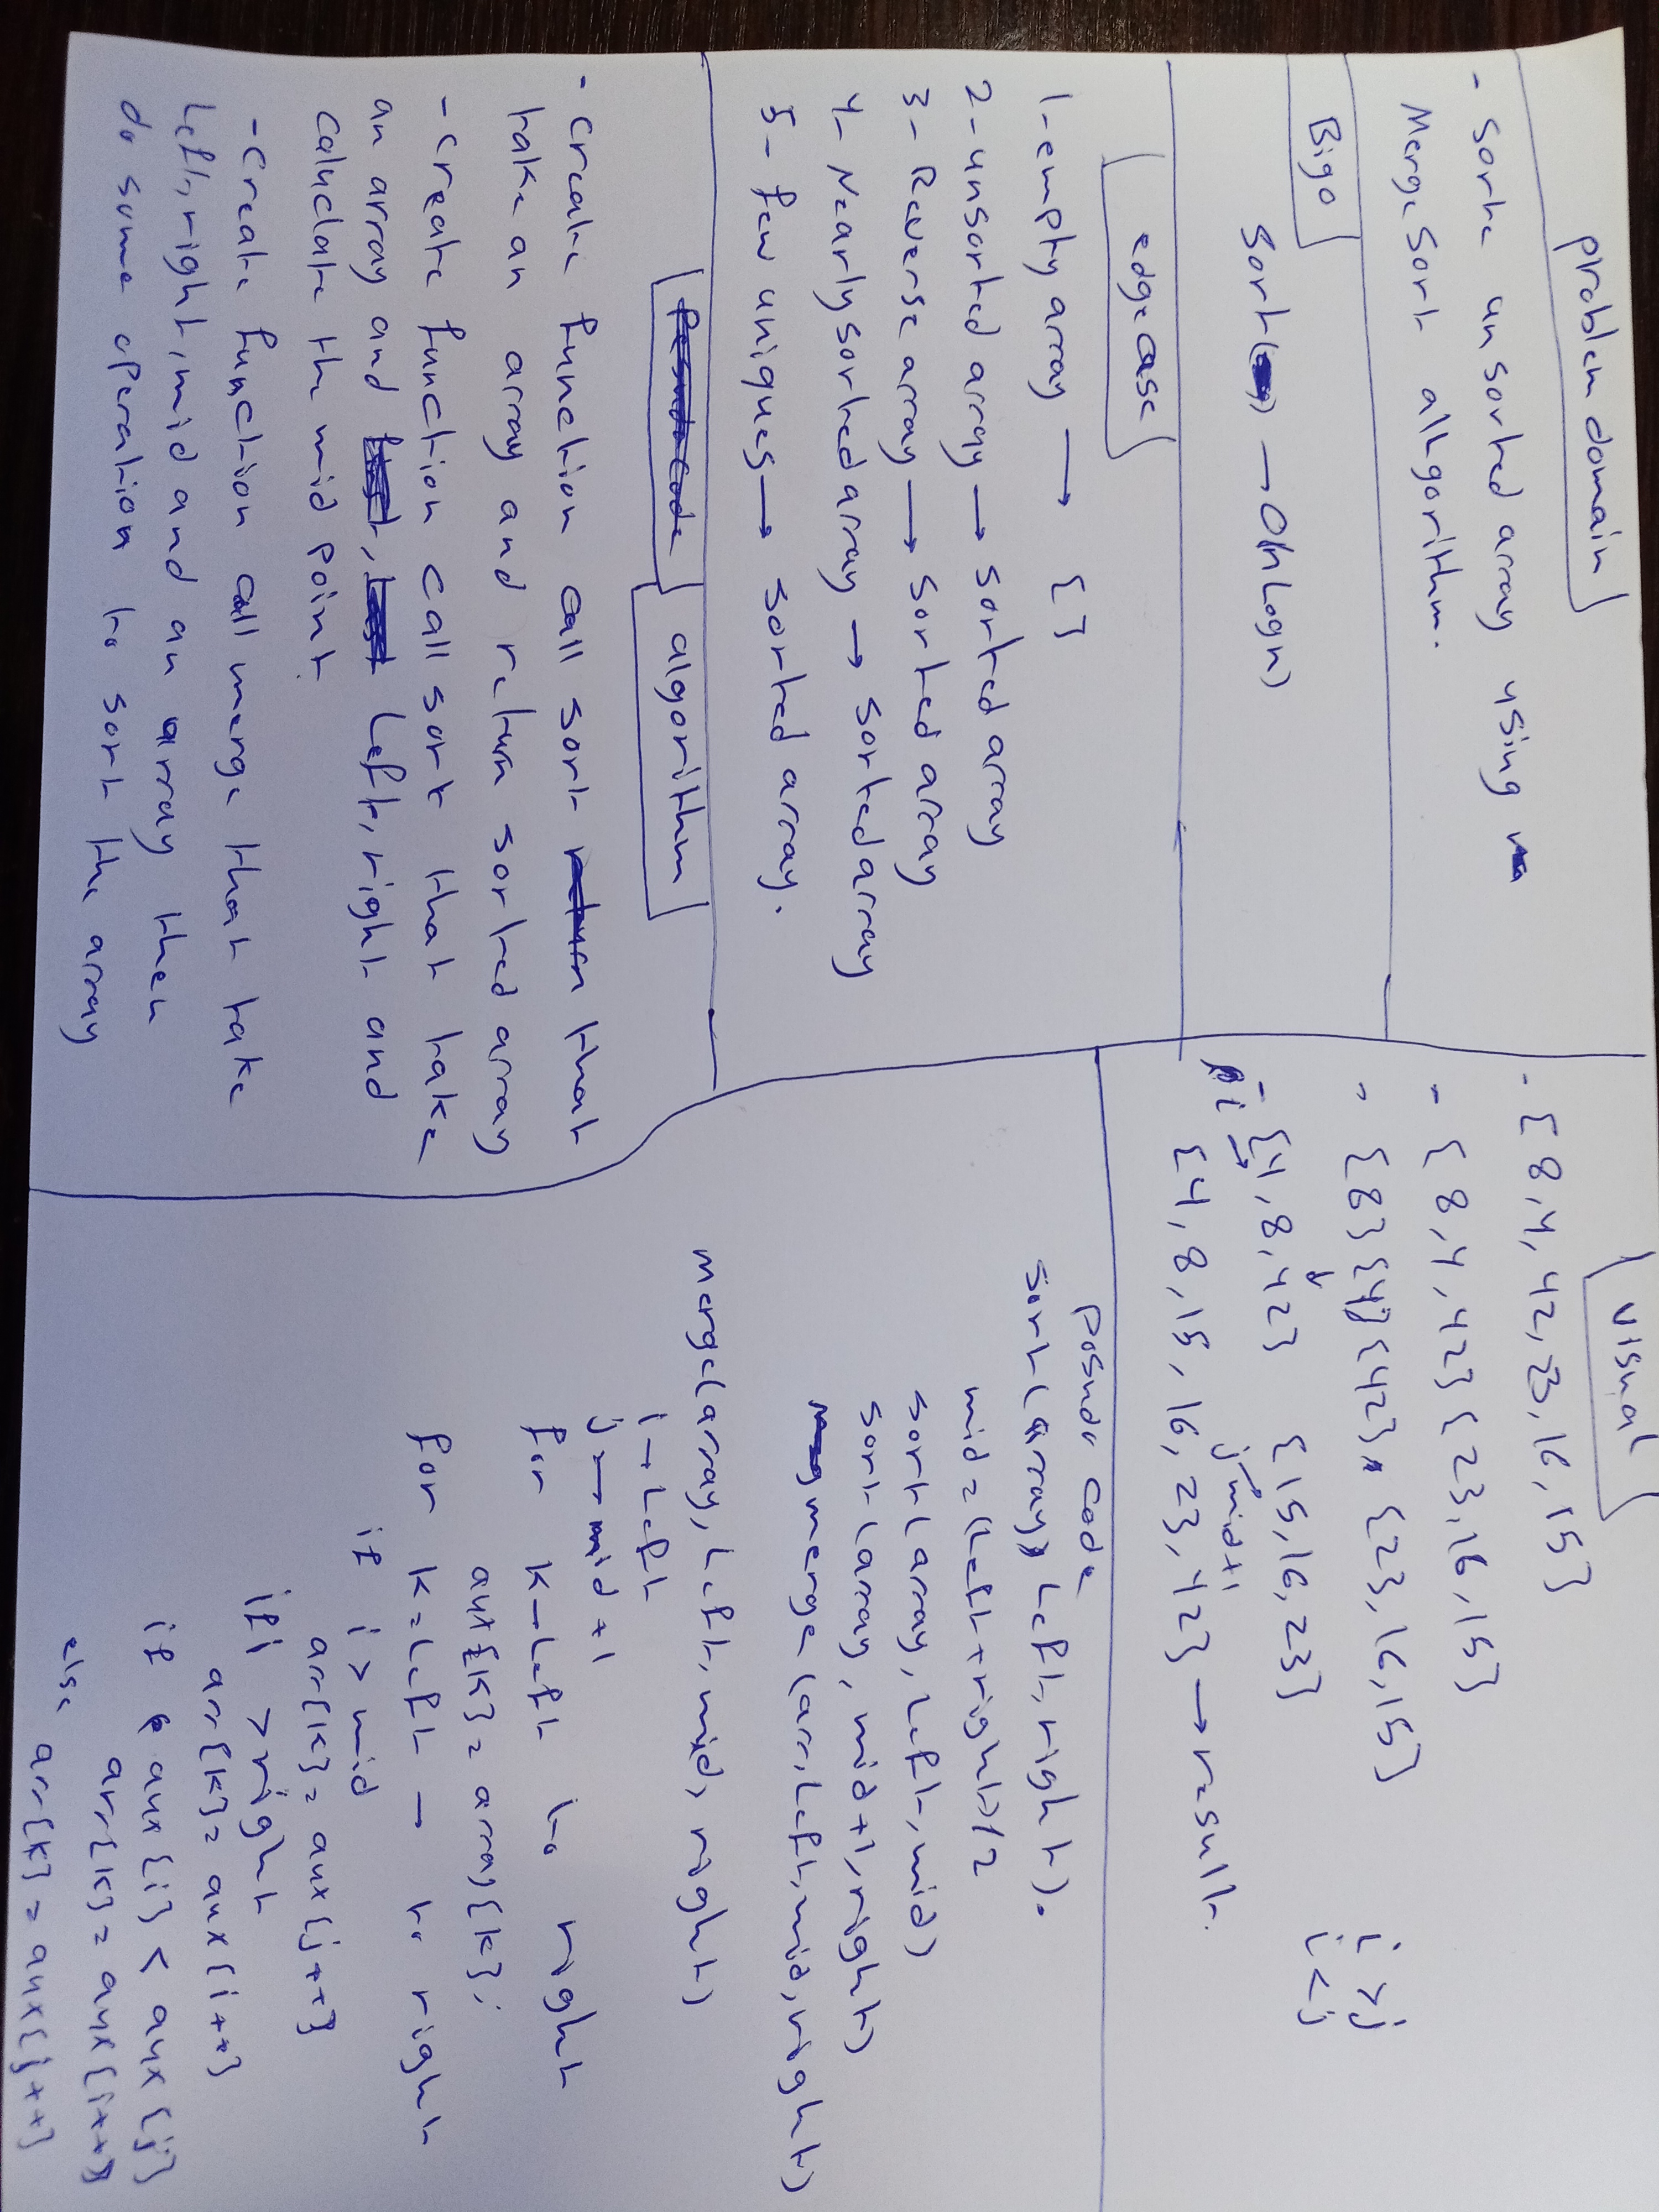 problem domain
- sorte unsorted array using
Merge Sort allgorithm.
Bigo
sort( ) → O(n Logn)
edge case
1- empty array → { }
2- unsorted array → sorted array
3- Reverse array → sorted array
4- Nearly sorted array → sorted array
5- few uniques → sorted array.
Pesudo code algorithm
- create function call sort return that
take an array and return sorted array
- create function call sort that take
an array and first, last left, right and
caluclate the mid point.
- create function call merge that take
left, right, mid and an array then
do some operation to sort the array
visual
- { 8, 4, 42, 23, 16, 15 }
- { 8, 4, 42 } { 23, 16, 15 }
- { 8 } { 4 } { 42 }, { 23, 16, 15 }
i > j
i < j
- { 4, 8, 42 } { 15, 16, 23 }
i → j mid+1
{ 4, 8, 15, 16, 23, 42 } → result.
posudo code
sort( array, left, right ).
mid = (left + right) / 2
sort( array, left, mid )
sort( array, mid+1, right )
merge ( arr, left, mid, right )
merge( array, left, mid, right )
i → left
j → mid + 1
for k → left to right
aux{k} = array{k};
for k = left → to right
if i > mid
arr{k} = aux{j++}
if i > right
arr{k} = aux{i++}
if aux{i} < aux{j}
arr{k} = aux{i++}
else
arr{k} = aux{j++}